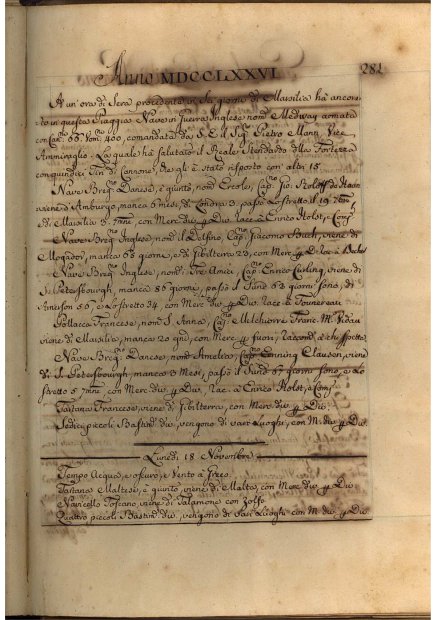 Anno MDCCLXXVI. 281
A un'ora di Sera procedente in sei giorni di Marsilia hà ancora-
to in questa Piaggia Nave in guerra Inglese nom.ª Medway armata
con Can.ni 60. Uom.ni 400, comandata da S. E. il Sig.r Pietro Mann, Vice
Ammiraglio. La quale hà salutato il Reale Stendardo della Fortezza
con quindici Tiri di Cannone, da egli è stato risposto con altri 15.
Nave Breg.no Danese, è giunto, nom.º Ercoles, Cap.no Gio.
viene d'Amburgo, manca 6 mesi, di Londra 3, passò lo stretto il 19
di Marsilia 5 con Merc. div. p Div. Race. à Enrico Holst, e Comp.
Nave Breg.no Inglese, nom.º il Delfino, Cap.no Giacomo viene di
Mogador, manca 66 giorni, e di Gibilterra 23, con Merc. p D. Race. à
Nave Breg.no Inglese, nom.º i Tre Amici, Cap.no Enrico Curling, viene di
S. Petersbourgh, manca 86 giorni, passò il Sund 63 giorni sono, di
56, e lo stretto 34, con Merc. div. p Div. Race. à
Pollacca Francese, nom.ª S. Anna, Cap.no Melchiorre Franc. M.
viene di Marsilia, manca 20 gni, con Merc. p fuori, Raccond. à chi spetta
Nave Breg.no Danese, nom.º Amelia, Cap.no Enning Clausen, viene
di S. Petersbourgh, manca 3 Mesi, passò il Sund 67 giorni sono, e lo
stretto 5 con Merc. div. p Div., Rac. à Enrico Holst, e Comp.
Tartana Francese, viene di Gibilterra, con Merc. div. p Div.
Sedici piccoli Bastim.ti div. vengono di varj Luoghi, con M. div. p Div.
Lunedi 18. Novembre
Tempo Acqua, e oscuro, e Vento à Greco.
Tartana Maltese, è giunta, viene di Malta, con Merc. div. p Div.
Navicello Toscano, viene di Talamone con Zolfo.
Quattro piccoli Bastim.ti div., vengono di varj Luoghi con M. div. p Div.